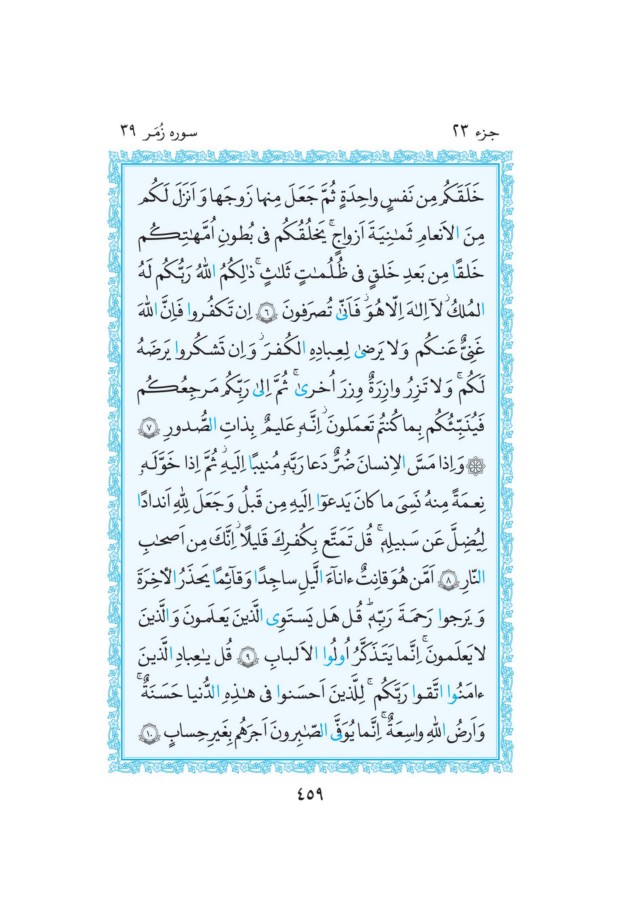 جزء ٢٣
سوره زُمَر ٣٩
خَلَقَكُم مِن نَفسٍ واحِدَةٍ ثُمَّ جَعَلَ مِنها زَوجَها وَ اَنزَلَ لَكُم
مِنَ الاَنعامِ ثَمٰنِيَةَ اَزواجٍ ۚ يَخلُقُكُم فى بُطونِ اُمَّهٰتِكُم
خَلقًا مِن بَعدِ خَلقٍ فى ظُلُمٰتٍ ثَلٰثٍ ۚ ذٰلِكُمُ اللهُ رَبُّكُم لَهُ
المُلكُ ۖ لآ اِلٰهَ اِلّا هُوَ ۖ فَاَنّىٰ تُصرَفونَ ﴿٦﴾ اِن تَكفُروا فَاِنَّ اللهَ
غَنِىٌّ عَنكُم ۖ وَلا يَرضىٰ لِعِبادِهِ الكُفرَ ۖ وَاِن تَشكُروا يَرضَهُ
لَكُم ۗ وَلا تَزِرُ وازِرَةٌ وِزرَ اُخرىٰ ۗ ثُمَّ اِلىٰ رَبِّكُم مَرجِعُكُم
فَيُنَبِّئُكُم بِما كُنتُم تَعمَلونَ ۚ اِنَّهُ عَليمٌ بِذاتِ الصُّدورِ ﴿٧﴾
۞ وَاِذا مَسَّ الاِنسانَ ضُرٌّ دَعا رَبَّهُ مُنيبًا اِلَيهِ ثُمَّ اِذا خَوَّلَهُ
نِعمَةً مِنهُ نَسِىَ ما كانَ يَدعوٓا اِلَيهِ مِن قَبلُ وَ جَعَلَ لِلّٰهِ اَندادًا
لِيُضِلَّ عَن سَبيلِهِ ۚ قُل تَمَتَّع بِكُفرِكَ قَليلًا ۖ اِنَّكَ مِن اَصحٰبِ
النّارِ ﴿٨﴾ اَمَّن هُوَ قانِتٌ ءانآءَ الَّيلِ ساجِدًا وَ قآئِمًا يَحذَرُ الأخِرَةَ
وَ يَرجوا رَحمَةَ رَبِّهِ ۗ قُل هَل يَستَوِى الَّذينَ يَعلَمونَ وَ الَّذينَ
لا يَعلَمونَ ۗ اِنَّما يَتَذَكَّرُ اُولُوا الاَلبابِ ﴿٩﴾ قُل يٰعِبادِ الَّذينَ
ءامَنُوا اتَّقوا رَبَّكُم ۚ لِلَّذينَ اَحسَنوا فى هٰذِهِ الدُّنيا حَسَنَةٌ ۗ
وَ اَرضُ اللهِ واسِعَةٌ ۗ اِنَّما يُوَفَّى الصّٰبِرونَ اَجرَهُم بِغَيرِ حِسابٍ ﴿١٠﴾
٤٥٩